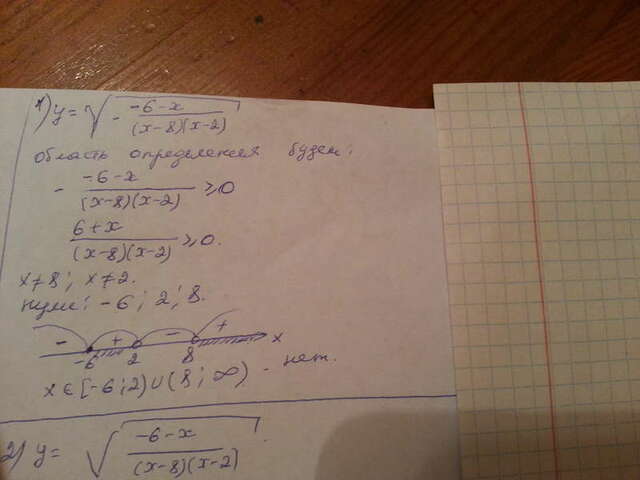 1) y = √(- (-6-x)/((x-8)(x-2)))
область определения будет:
- (-6-x)/((x-8)(x-2)) ≥ 0
(6+x)/((x-8)(x-2)) ≥ 0.
x≠8; x≠2.
нули: -6; 2; 8.
- + - +
-6 2 8 x
x ∈ [-6; 2) ∪ (8; ∞) - нет.
2) y = √((-6-x)/((x-8)(x-2)))